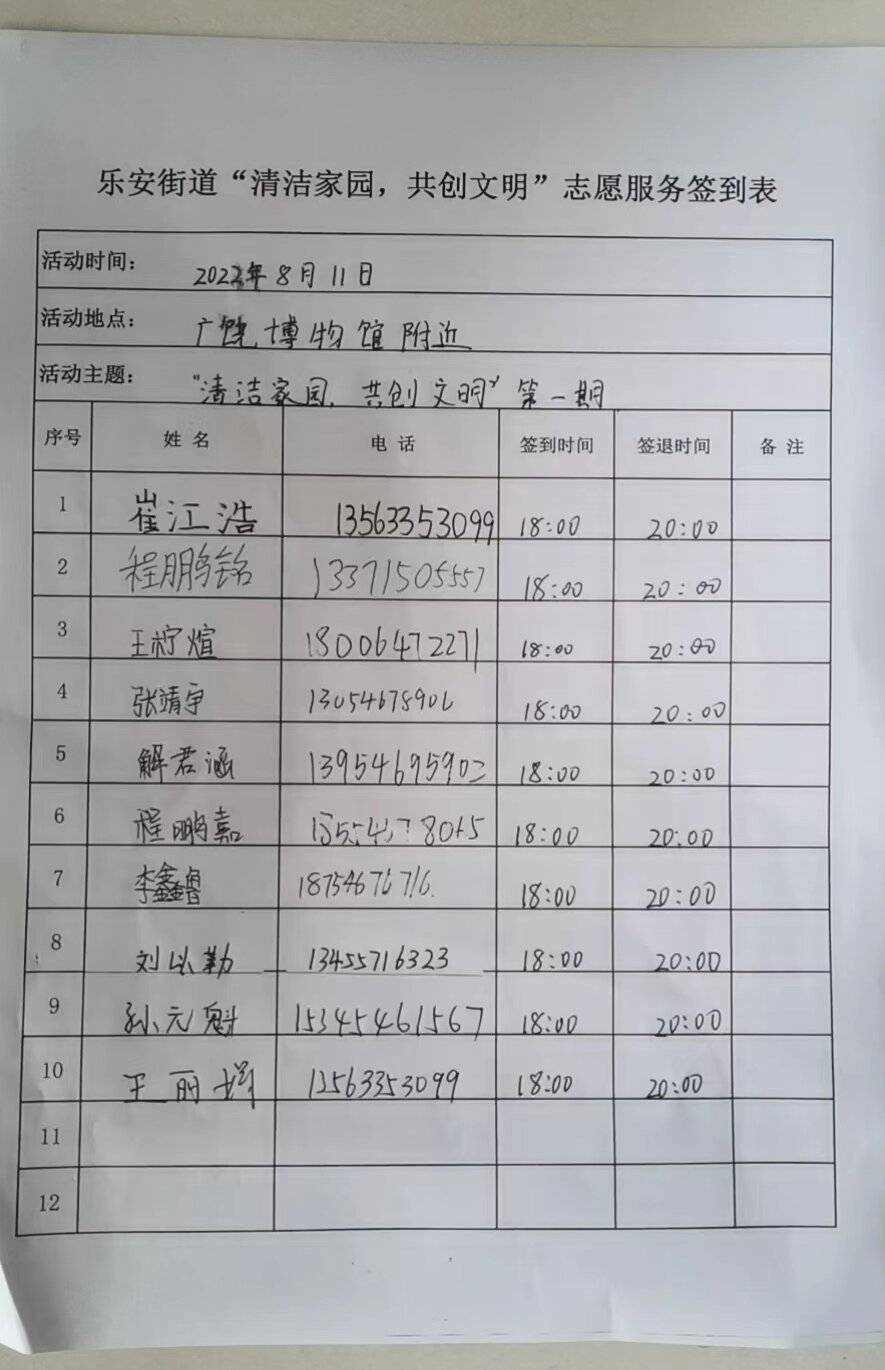 乐安街道“清洁家园，共创文明”志愿服务签到表
活动时间： 2022年8月11日
活动地点： 广饶博物馆附近
活动主题： “清洁家园、共创文明”第一期
序号 姓名 电话 签到时间 签退时间 备注
1 崔江浩 13563353099 18:00 20:00
2 程鹏铭 13371505557 18:00 20:00
3 王柠煊 18006472271 18:00 20:00
4 张靖宇 18:00 20:00
5 解君涵 13954695902 18:00 20:00
6 程鹏嘉 18:00 20:00
7 李鑫鲁 18:00 20:00
8 刘以勤 13455716323 18:00 20:00
9 孙元魁 15345461567 18:00 20:00
10 王丽 18:00 20:00
11
12